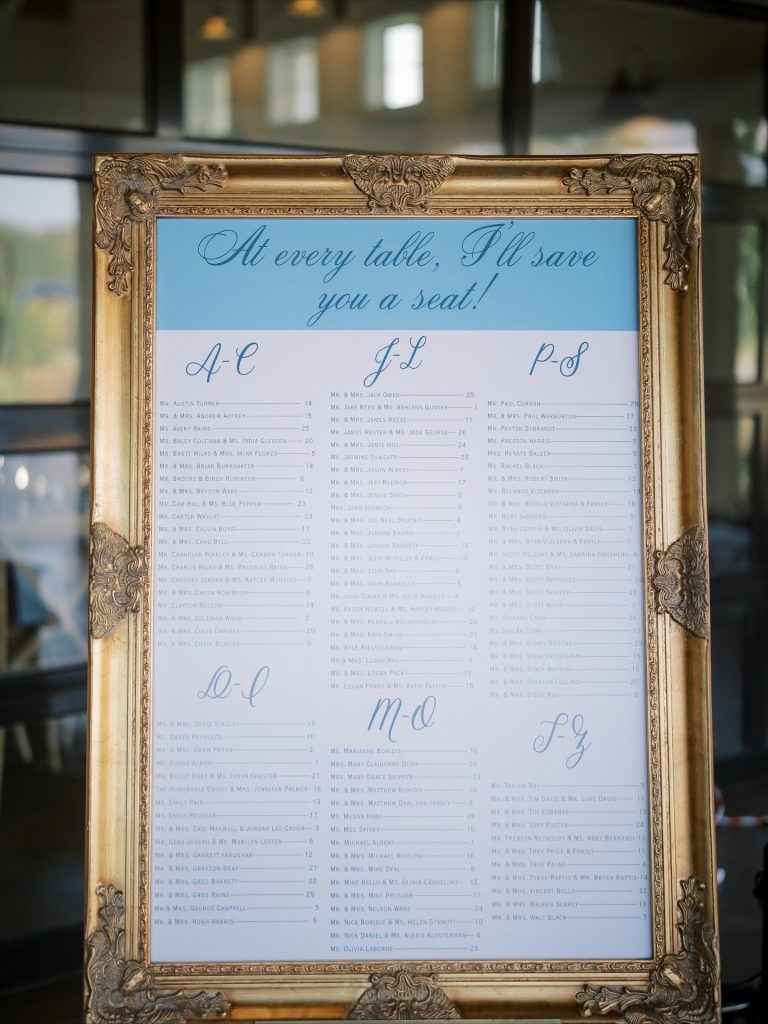 At every table, I'll save
you a seat!
A-C
Mr. Austin Turner 14
Mr. & Mrs. Andrew Autrey 15
Ms. Avery Rains 25
Mr. Baley Coleman & Ms. India Gleason 20
Mr. Brett Wilks & Mrs. Irina Flores 5
Mr. & Mrs. Brian Burkharter 14
Mr. Brooks & Birch Robertson 6
Mr. & Mrs. Bryson Ware 12
Mr. Cam Hill & Ms. Blue Pepper 23
Mr. Carter Wright 23
Mr. & Mrs. Calvin Boyd 13
Mr. & Mrs. Chad Bell 22
Mr. Chandler Yokeley & Ms. Camryn Turner 19
Mr. Charlie Hicks & Ms. Pressley Raino 25
Mr. Chesney Jordan & Ms. Kaycee Morales 7
Mr. & Mrs. Chuck Robinson 6
Mr. Clayton Nelson 14
Mr. & Mrs. Coleman Wood 2
Mr. & Mrs. Colin Daniels 20
Mr. & Mrs. Craig Bowers
D-I
Mr. & Mrs. David Yokeley 19
Ms. Daryn Reynolds 10
Mr. & Mrs. Drew Pryor 2
Ms. Donna Albert 1
Mr. Elliot Bray & Ms. Jadyn Chester 21
The Honorable Emory & Mrs. Jennifer Palmer 16
Ms. Emily Pair 13
Ms. Emily Prosser 17
Mr. & Mrs. Eric Maxwell & Jordan Lee Crook 3
Mr. Gene Joseph & Ms. Marilyn Lester 6
Mr. & Mrs. Garrett Farquhar 12
Mr. & Mrs. Grayson Bray 21
Mr. & Mrs. Greg Barnett 22
Mr. & Mrs. Greg Rains 25
Mr. & Mrs. George Chappell 3
Mr. & Mrs. Hugh Harris 5
J-L
Mr. & Mrs. Jack Owen 25
Mr. Jake Reed & Ms. Ashlynn Gunter 1
Mr. & Mrs. James Reese 11
Mr. James Hester & Ms. Jada George 26
Mr. & Mrs. Jamie Hill 24
Ms. Jasmine Thweatt 26
Mr. & Mrs. Jason Albert 1
Mr. & Mrs. Jeff Redmon 17
Mr. & Mrs. Jessie Smith 3
Mrs. Joan Johnson 8
Mr. & Mrs. Joe Neal Douthit 4
Mr. & Mrs. Jordan Brown 2
Mr. & Mrs. Joshua Barnett 16
Mr. & Mrs. John Morales & Family 18
Mr. & Mrs. John Ray 9
Mr. & Mrs. John Sorrells 3
Mr. John Timms & Ms. Julie Hanson 4
Mr. Karon Howell & Ms. Hayley Mason 12
Mr. & Mrs. Kendall Holderfield
Mr. & Mrs. Kris Smith 21
Mr. Kyle Riesselmann 14
Mr. & Mrs. Logan Ray 9
Mr. & Mrs. Logan Pace 15
Mr. Logan Frady & Ms. Katio Taylor 15
M-O
Ms. Marianne Bonidie 10
Mrs. Mary Claiborne Dean 26
Mrs. Mary Grace Skipper 23
Mr. & Mrs. Matthew Bonidie 10
Mr. & Mrs. Matthew Dyal and family 8
Ms. Megan Hare 26
Ms. Meg Spivey 10
Mr. Michael Albert 1
Mr. & Mrs. Michael Rohling 18
Mr. & Mrs. Mike Dyal 8
Mr. Mike Bello & Ms. Olivia Candelino 12
Mr. & Mrs. Mike Prosser 17
Mr. & Mrs. Nelson Ware 24
Mr. Nick Bonidie & Ms. Helen Synnott 10
Mr. Nick Daniel & Ms. Alexis Klosterman 6
Ms. Olivia Laborde 23
P-S
Mr. Paul Curran 25
Mr. & Mrs. Paul Warburton 17
Mr. Peyton Sybrandt 23
Mr. Preston Harris 5
Mrs. Renate Balser 9
Ms. Rachel Black 7
Mr. & Mrs. Robert Smith 13
Mr. Rolando Vizcarra
Mr. & Mrs. Ronald Vizcarra & Family 18
Mr. Russ Sanders
Mr. Ryan Griffin & Ms. Olivia Davis 1
Mr. & Mrs. Ryan Vizcarra & Family 7
Mr. Scott Oglesby & Ms. Sabrina Smothers 4
Mr. & Mrs. Scott Bray 21
Mr. & Mrs. Scott Reynolds 24
Mr. & Mrs. Scott Skipper 22
Mr. & Mrs. Scott Wood 2
Ms. Shianne Conn 26
Ms. Shiloh Conn
Mr. & Mrs. Sonny Dichiara 22
Mr. & Mrs. Spencer Cothran 15
Mr. & Mrs. Stacy Watson 16
Mr. & Mrs. Stanton Collins 20
Mr. & Mrs. Steve Ray 9
T-Z
Ms. Taylor Ray 9
Mr. & Mrs. Tim Davis & Mr. Luke Davis 11
Mr. & Mrs. Tim Eubanks
Mr. & Mrs. Toby Foster 24
Mr. Trenton Reynolds & Ms. Abby Bernabei 13
Mr. & Mrs. Troy Price & Family 11
Mr. & Mrs. Troy Payne 4
Mr. & Mrs. Tyree Raptis & Mr. Brock Raptis 14
Mr. & Mrs. Vincent Bello 22
Mr. & Mrs. Walker Searcy 19
Mr. & Mrs. Walt Black 7